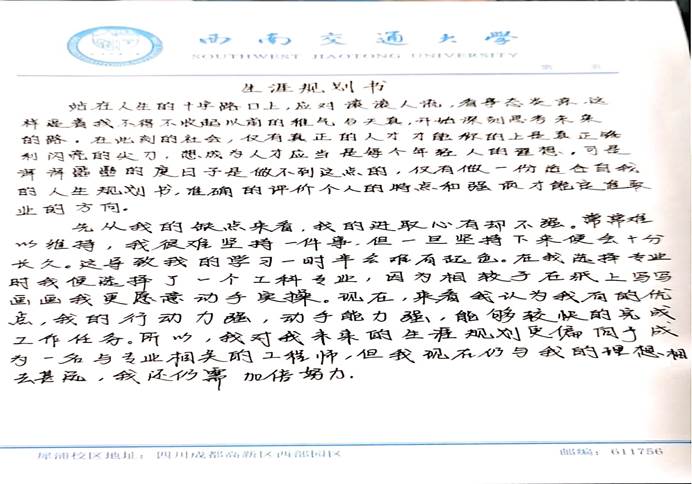 西南交通大学
SOUTHWEST JIAOTONG UNIVERSITY
第 页
生涯规划书
站在人生的十字路口上,应对滚滚人流,看事态发展,这
样逼着我不得不收起以前的稚气与天真,开始深刻思考未来
的路。在此刻的社会,仅有真正的人才才能称的上是真正锋
利闪亮的尖刀,想成为人才应当是每个年轻人的理想。可是
浑浑噩噩的度日子是做不到这点的,仅有做一份适合自我
的人生规划书,准确的评价个人的特点和强项才能定准职
业的方向。
先从我的缺点来看,我的进取心有却不强。常常难
以维持,我很难坚持一件事,但一旦坚持下来便会十分
长久。这导致我的学习一时半会难有起色。在我选择专业
时我便选择了一个工科专业,因为相较于在纸上写写
画画我更愿意动手实操。现在,来看我认为我有的优
点,我的行动力强,动手能力强,能够较快的完成
工作任务。所以,我对我未来的生涯规划更偏向于成
为一名与专业相关的工程师,但我现在仍与我的理想相
去甚远,我还仍需加倍努力.
犀浦校区地址:四川成都高新区西部园区
邮编:611756